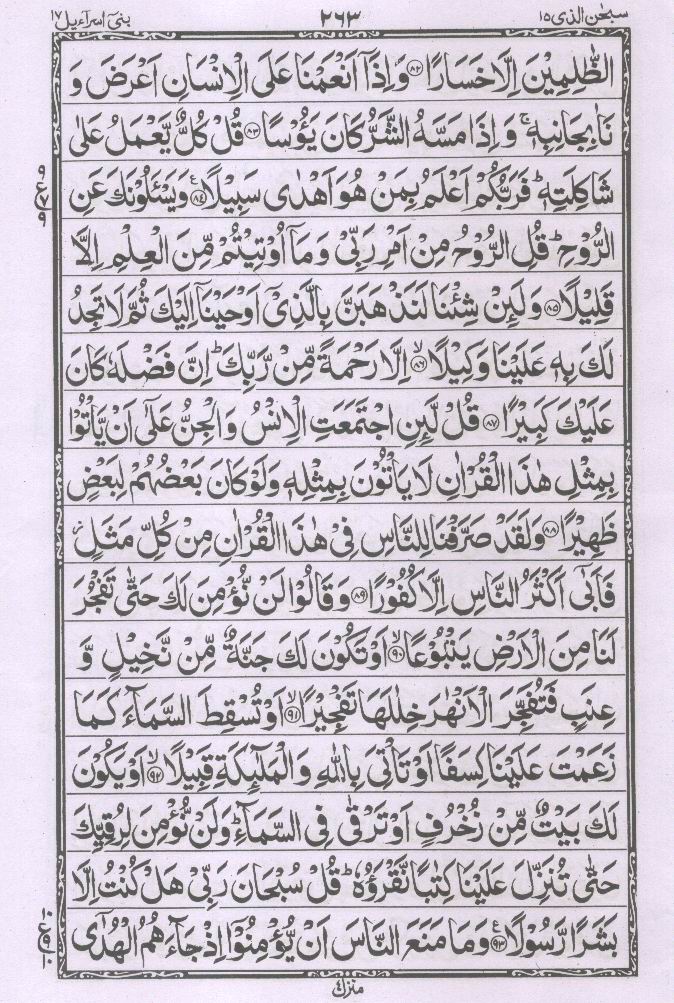 سبحٰن الذی ۱۵ ۲۶۳ بنی اسرآءیل ۱۷
الظّٰلِمِیْنَ اِلَّا خَسَارًا ﴿۸۲﴾ وَاِذَاۤ اَنْعَمْنَا عَلَی الْاِنْسَانِ اَعْرَضَ وَ
نَاٰ بِجَانِبِهٖ ۚ وَاِذَا مَسَّهُ الشَّرُّ كَانَ یَـُٔوْسًا ﴿۸۳﴾ قُلْ كُلٌّ یَّعْمَلُ عَلٰی
شَاكِلَتِهٖ ؕ فَرَبُّكُمْ اَعْلَمُ بِمَنْ هُوَ اَهْدٰی سَبِیْلًا ﴿۸۴﴾ ع وَیَسْـَٔلُوْنَكَ عَنِ
الرُّوْحِ ؕ قُلِ الرُّوْحُ مِنْ اَمْرِ رَبِّیْ وَمَاۤ اُوْتِیْتُمْ مِّنَ الْعِلْمِ اِلَّا
قَلِیْلًا ﴿۸۵﴾ وَلَىِٕنْ شِئْنَا لَنَذْهَبَنَّ بِالَّذِیْۤ اَوْحَیْنَاۤ اِلَیْكَ ثُمَّ لَا تَجِدُ
لَكَ بِهٖ عَلَیْنَا وَكِیْلًا ﴿۸۶﴾ ۙ اِلَّا رَحْمَةً مِّنْ رَّبِّكَ ؕ اِنَّ فَضْلَهٗ كَانَ
عَلَیْكَ كَبِیْرًا ﴿۸۷﴾ قُلْ لَّىِٕنِ اجْتَمَعَتِ الْاِنْسُ وَالْجِنُّ عَلٰۤی اَنْ یَّاْتُوْا
بِمِثْلِ هٰذَا الْقُرْاٰنِ لَا یَاْتُوْنَ بِمِثْلِهٖ وَلَوْ كَانَ بَعْضُهُمْ لِبَعْضٍ
ظَهِیْرًا ﴿۸۸﴾ وَلَقَدْ صَرَّفْنَا لِلنَّاسِ فِیْ هٰذَا الْقُرْاٰنِ مِنْ كُلِّ مَثَلٍ ؗ
فَاَبٰۤی اَكْثَرُ النَّاسِ اِلَّا كُفُوْرًا ﴿۸۹﴾ وَقَالُوْا لَنْ نُّؤْمِنَ لَكَ حَتّٰی تَفْجُرَ
لَنَا مِنَ الْاَرْضِ یَنْۢبُوْعًا ﴿۹۰﴾ ۙ اَوْ تَكُوْنَ لَكَ جَنَّةٌ مِّنْ نَّخِیْلٍ وَّ
عِنَبٍ فَتُفَجِّرَ الْاَنْهٰرَ خِلٰلَهَا تَفْجِیْرًا ﴿۹۱﴾ ۙ اَوْ تُسْقِطَ السَّمَآءَ كَمَا
زَعَمْتَ عَلَیْنَا كِسَفًا اَوْ تَاْتِیَ بِاللّٰهِ وَالْمَلٰٓىِٕكَةِ قَبِیْلًا ﴿۹۲﴾ ۙ اَوْ یَكُوْنَ
لَكَ بَیْتٌ مِّنْ زُخْرُفٍ اَوْ تَرْقٰی فِی السَّمَآءِ ؕ وَلَنْ نُّؤْمِنَ لِرُقِیِّكَ
حَتّٰی تُنَزِّلَ عَلَیْنَا كِتٰبًا نَّقْرَؤُهٗ ؕ قُلْ سُبْحَانَ رَبِّیْ هَلْ كُنْتُ اِلَّا
بَشَرًا رَّسُوْلًا ﴿۹۳﴾ ع وَمَا مَنَعَ النَّاسَ اَنْ یُّؤْمِنُوْۤا اِذْ جَآءَهُمُ الْهُدٰۤی
منزل ۴